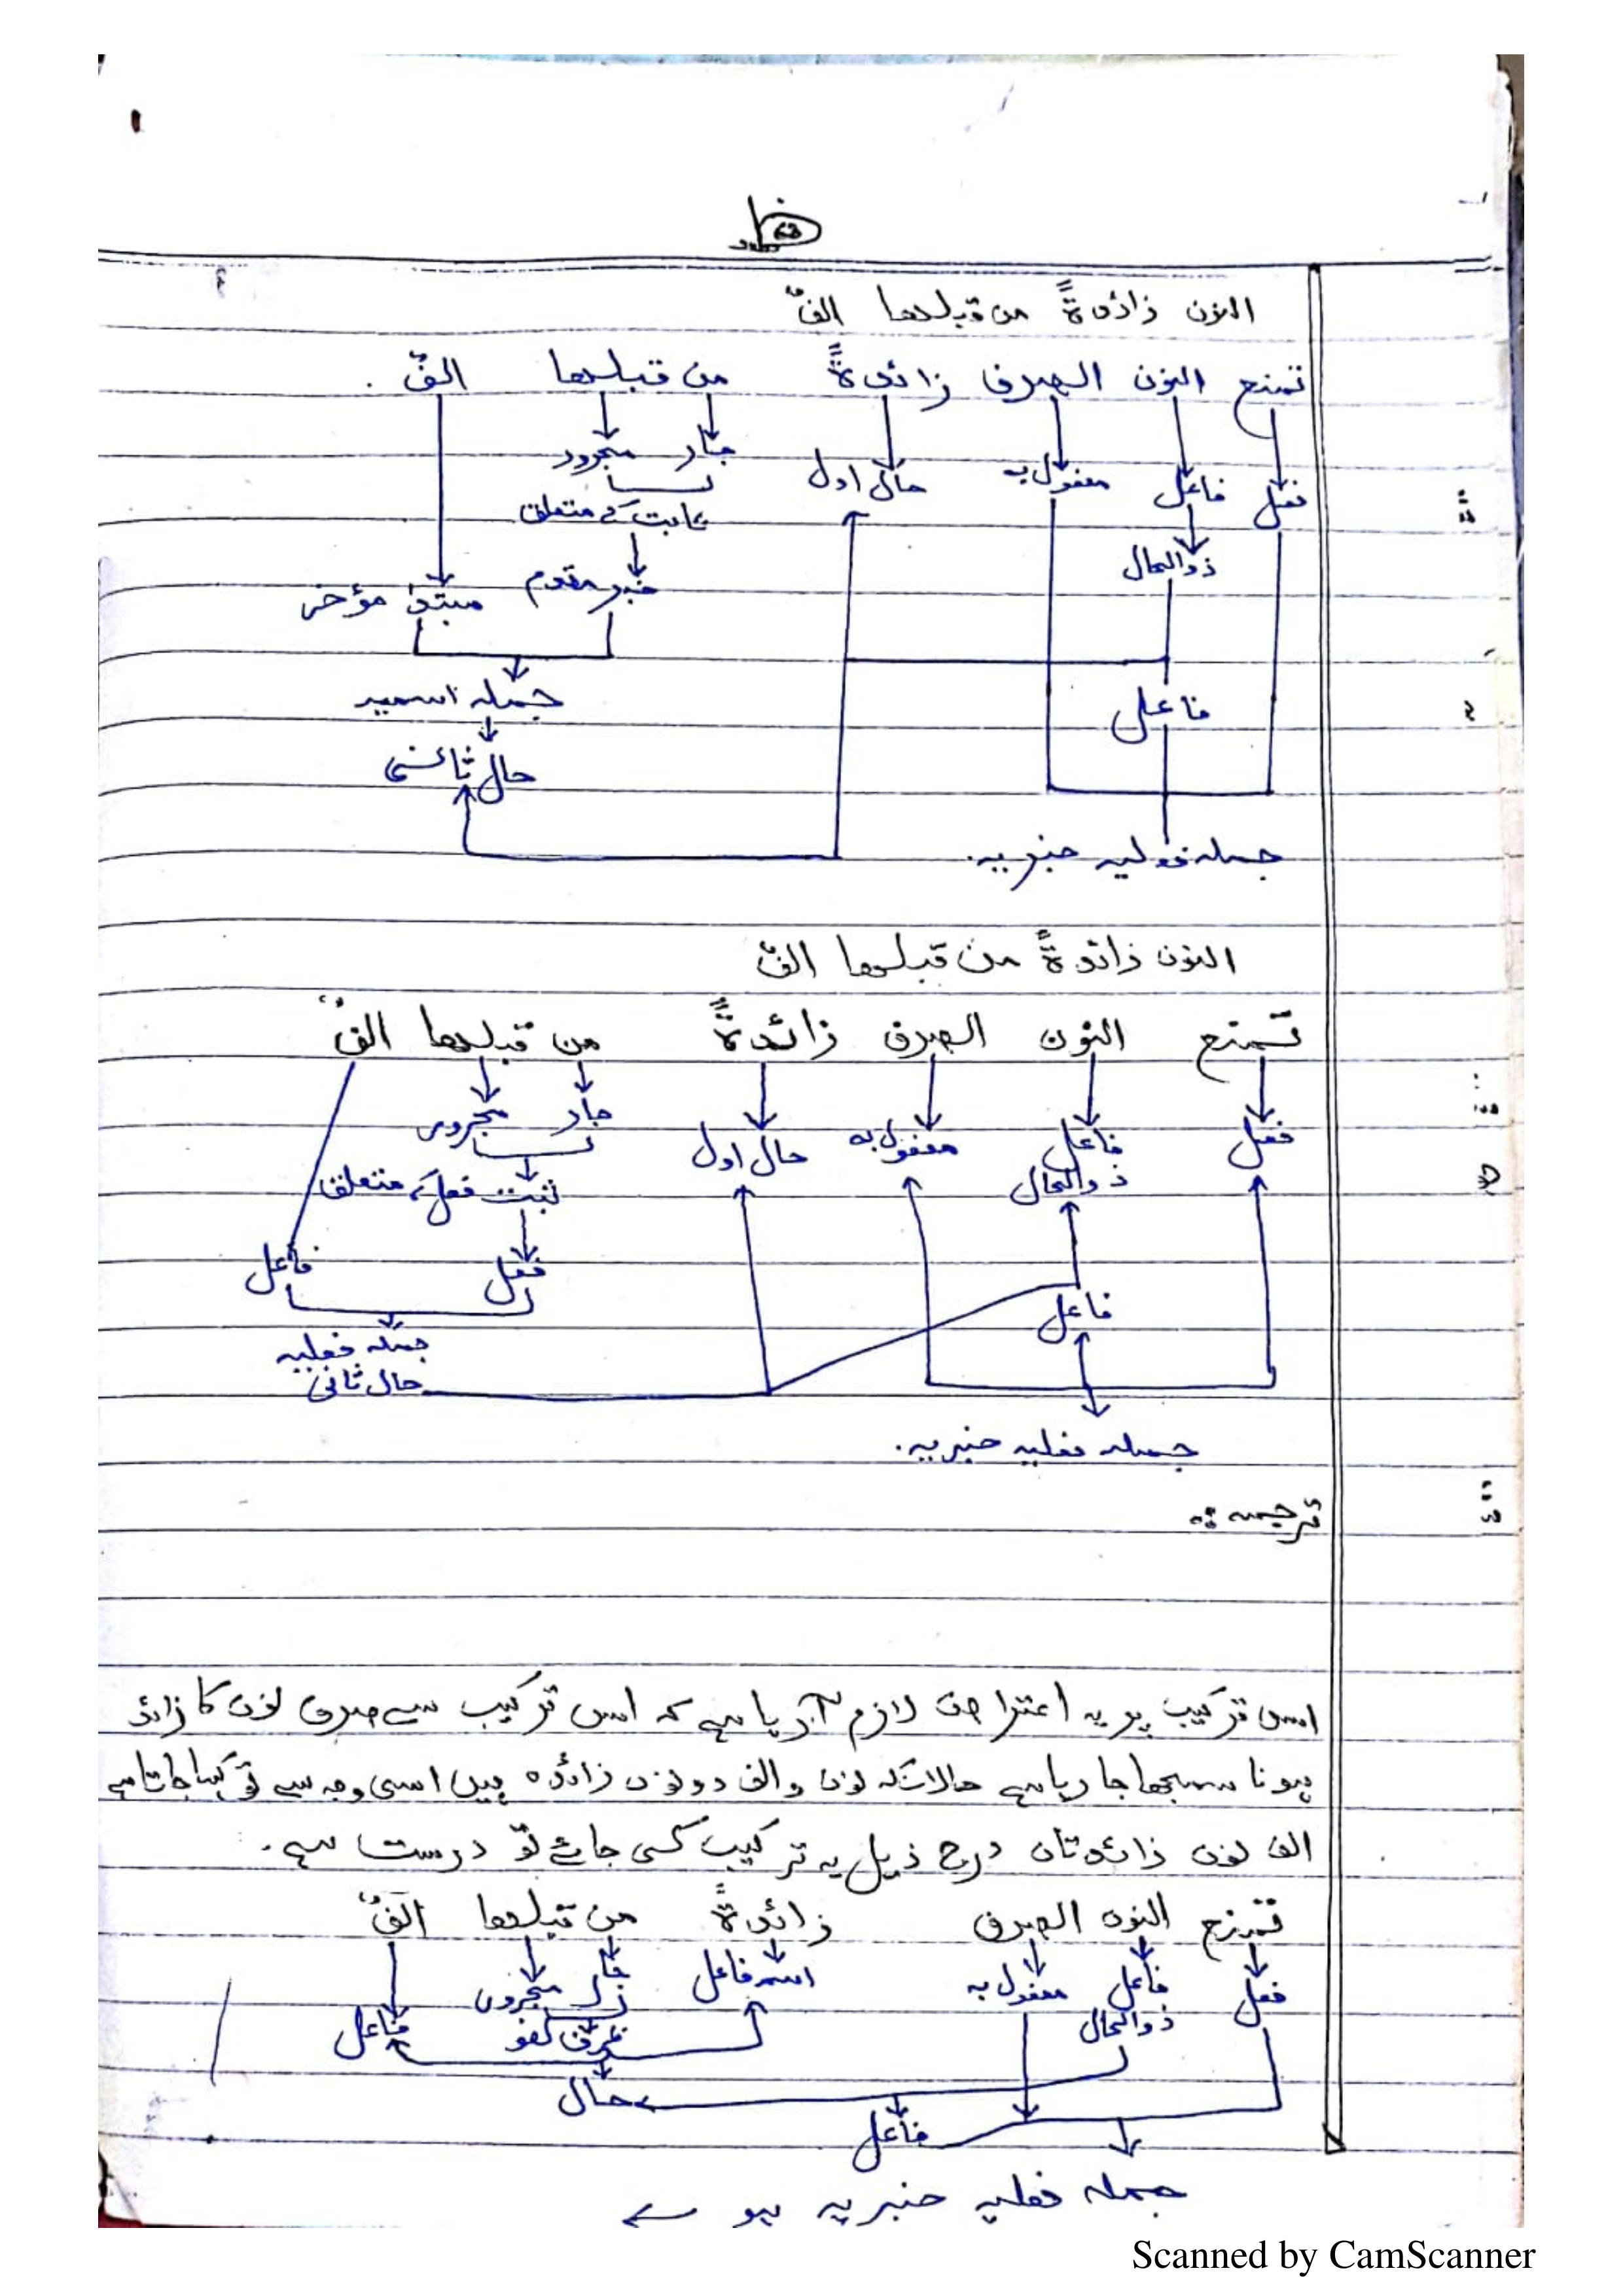 النون زائدةً من قبلها الفٌ
تمنع النون الصرف زائدةً من قبلها الفٌ .
جار مجرور
فعل فاعل مفعول به حال اول
ثابت کے متعلق
ذوالحال
خبر مقدم مبتدا مؤخر
جملہ اسمیہ
فاعل
حال ثانی
جملہ فعلیہ خبریہ.
النون زائدةً من قبلها الفٌ
تمنع النون الصرف زائدةً من قبلها الفٌ
جار مجرور
فعل فاعل مفعول به حال اول
ذوالحال
ثبت فعل کے متعلق
فعل فاعل
فاعل
جملہ فعلیہ
حال ثانی
جملہ فعلیہ خبریہ.
ترجمہ :
اس ترکیب پر یہ اعتراض لازم آرہا ہے کہ اس ترکیب سے صرف نون کا زائد
ہونا سمجھا جا رہا ہے حالانکہ نون والف دونوں زائدہ ہیں اسی وجہ سے تو کہا جاتا ہے
الف نون زائدتان درج ذیل یہ ترکیب کی جائے تو درست ہے.
تمنع النون الصرف زائدةً من قبلها الفٌ
فعل فاعل مفعول به اسم فاعل جار مجرور
ذوالحال ظرف لغو فاعل
حال
فاعل
جملہ فعلیہ خبریہ ہو
Scanned by CamScanner